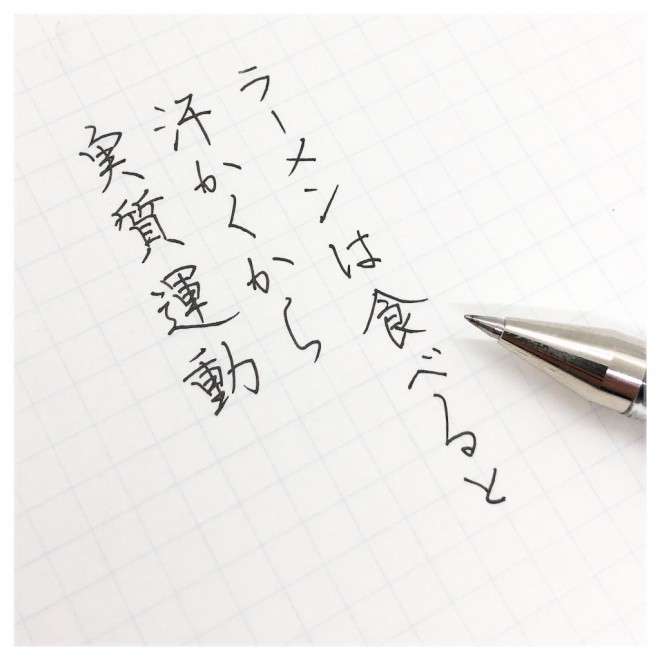 ラーメンは食べると
汗かくから
実質運動